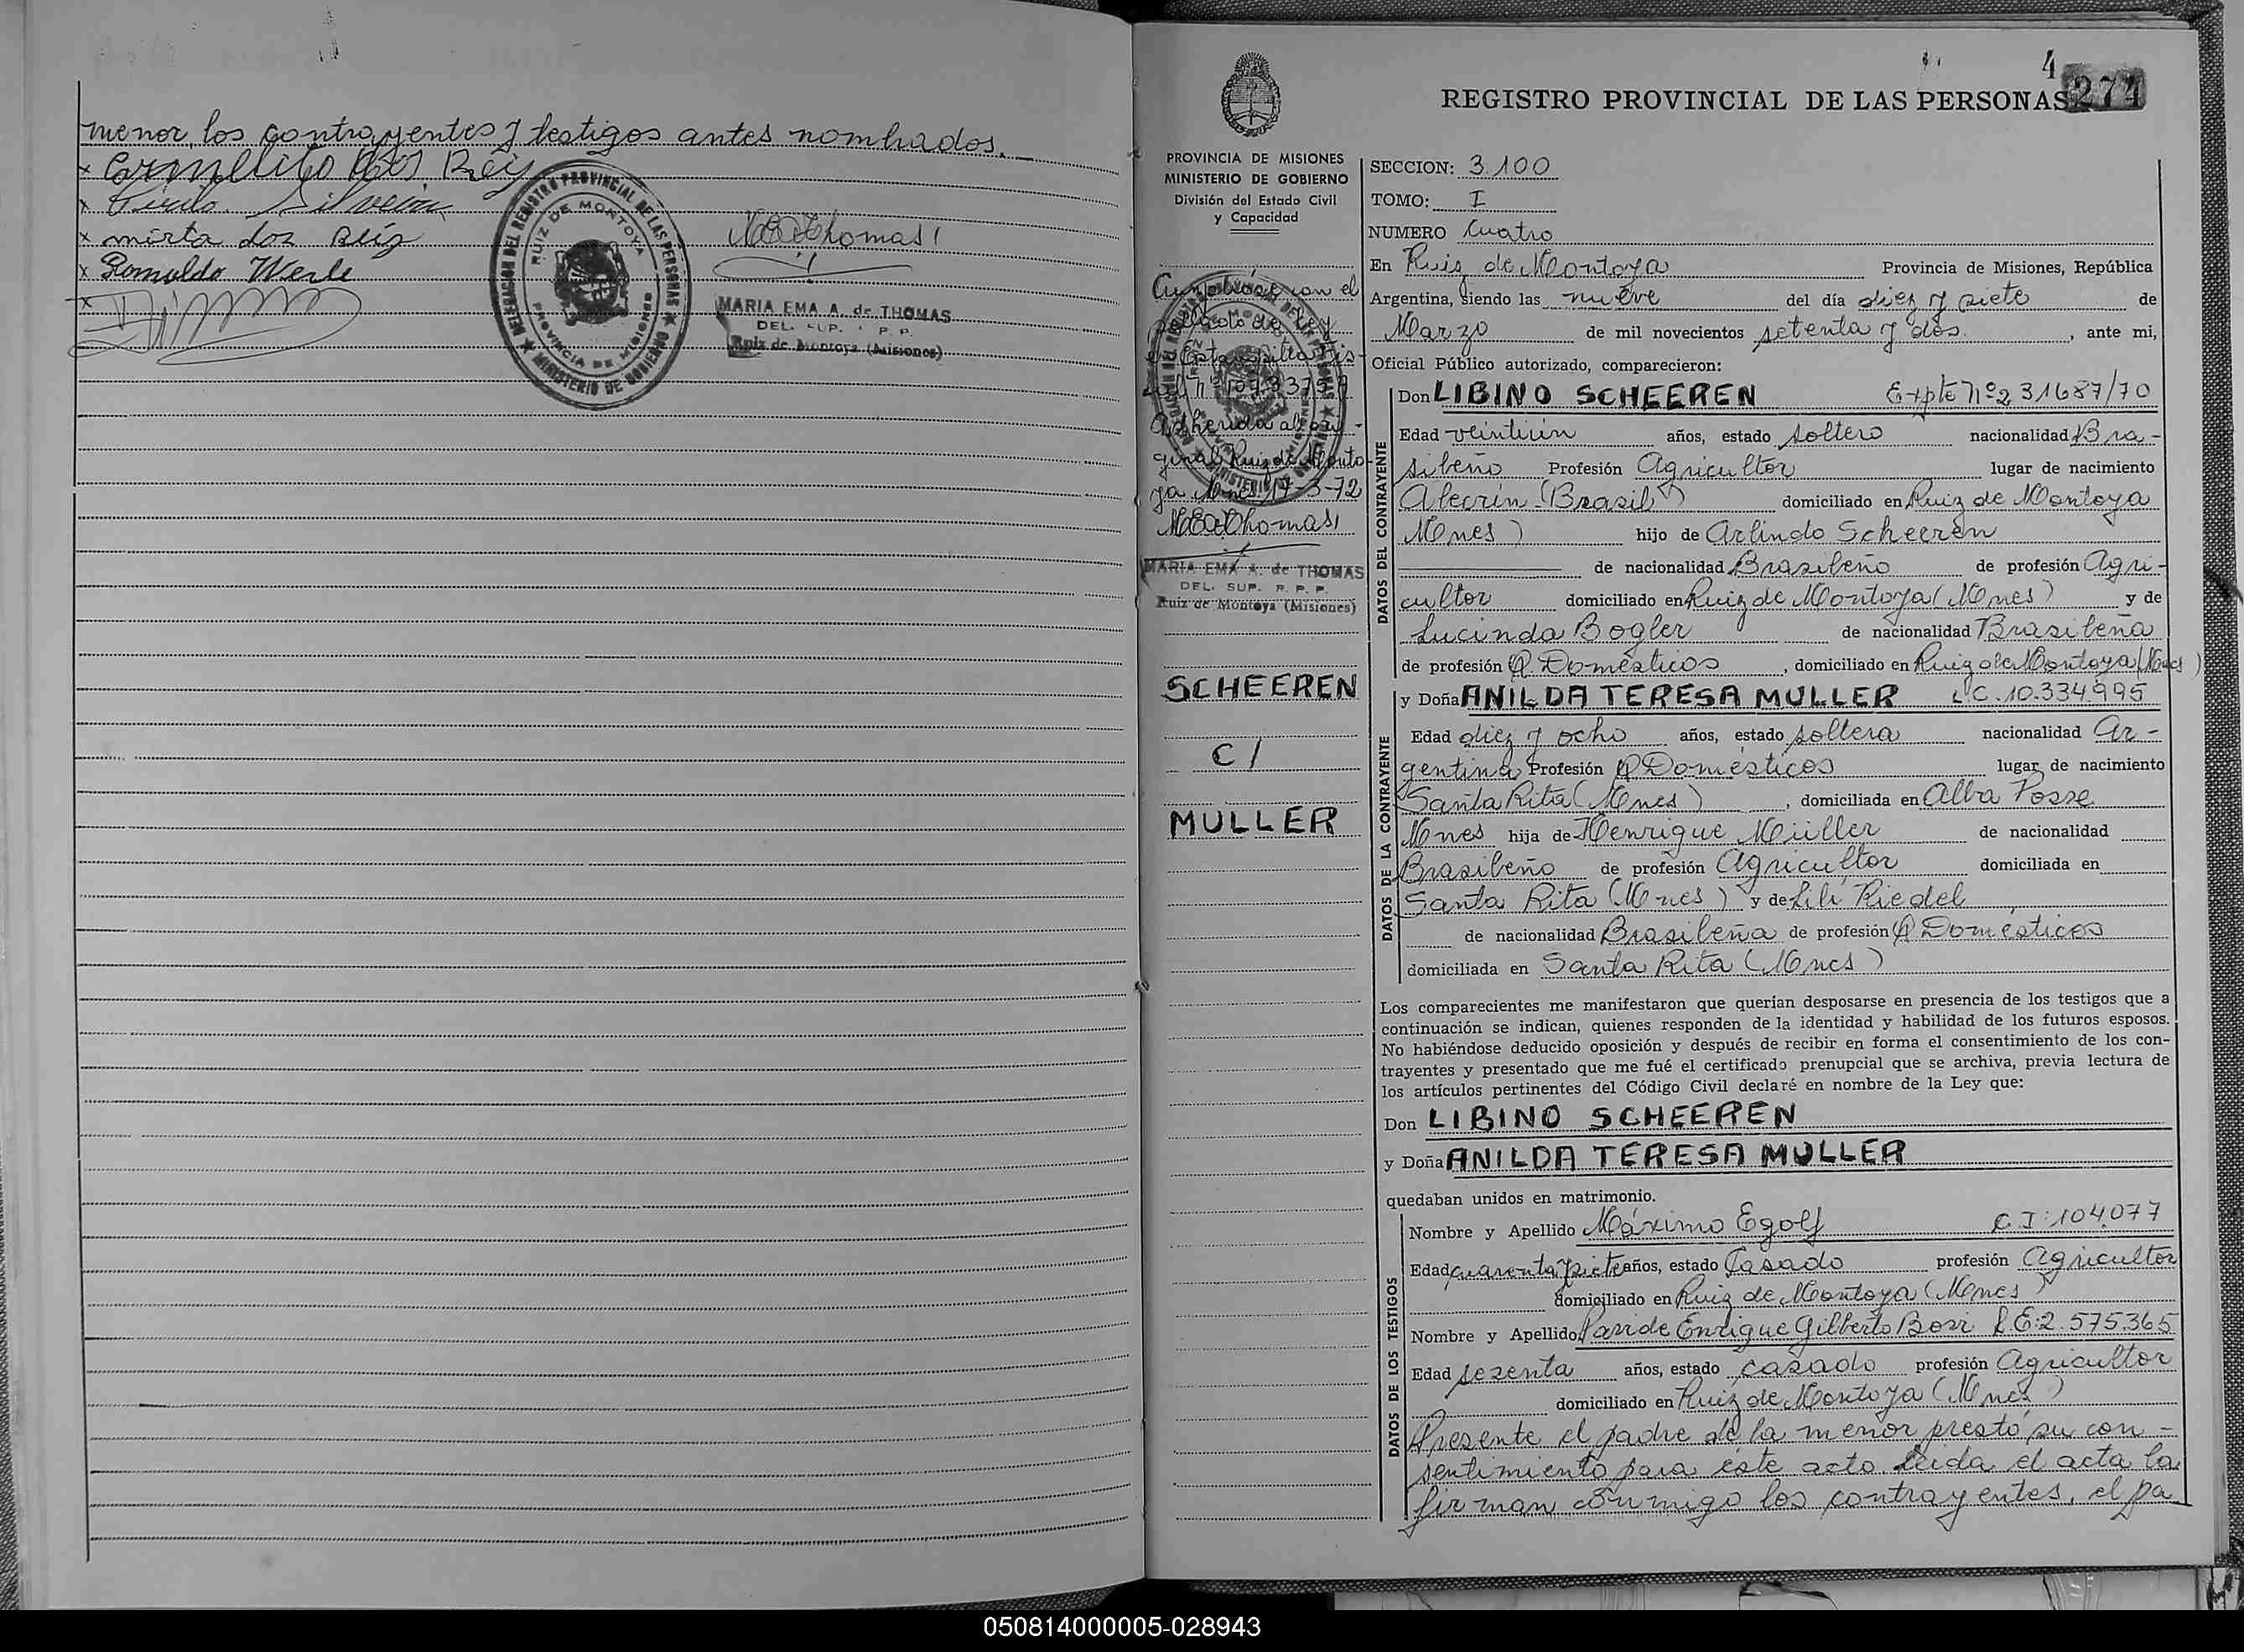 menor, los contrayentes y testigos antes nombrados.
x Carmelito dos Reis
x Silveira
x mirta dos Reiz
x Romaldo Werle
x
DELEGACION DEL REGISTRO PROVINCIAL DE LAS PERSONAS
RUIZ DE MONTOYA
PROVINCIA DE MISIONES
★ MINISTERIO DE GOBIERNO ★
MEAThomas
MARIA EMA A. de THOMAS
DEL. SUP. R. P. P.
Ruiz de Montoya (Misiones)
4
274
REGISTRO PROVINCIAL DE LAS PERSONAS
PROVINCIA DE MISIONES
MINISTERIO DE GOBIERNO
División del Estado Civil
y Capacidad
con el
de Ley
Adherida al ori-
ginal. Ruiz de Monto-
ya Mnes 17-3-72
MEAThomas
MARIA EMA A. de THOMAS
DEL. SUP. R. P. P.
Ruiz de Montoya (Misiones)
SCHEEREN
C/
MULLER
SECCION: 3.100
TOMO: I
NUMERO Cuatro
En Ruiz de Montoya Provincia de Misiones, República
Argentina, siendo las nueve del día diez y siete de
Marzo de mil novecientos setenta y dos , ante mi,
Oficial Público autorizado, comparecieron:
DATOS DEL CONTRAYENTE
Don LIBINO SCHEEREN Expte Nº231687/70
Edad veintiun años, estado soltero nacionalidad Bra-
sileño Profesión Agricultor lugar de nacimiento
Alecrin (Brasil) domiciliado en Ruiz de Montoya
Mnes) hijo de Arlindo Scheeren
de nacionalidad Brasileño de profesión Agri-
cultor domiciliado en Ruiz de Montoya (Mnes) y de
Lucinda Bogler de nacionalidad Brasileña
de profesión Q. Domésticos , domiciliado en Ruiz de Montoya (Mnes)
DATOS DE LA CONTRAYENTE
y Doña ANILDA TERESA MULLER L.C. 10.334.995
Edad diez y ocho años, estado soltera nacionalidad Ar-
gentina Profesión Q Domésticos lugar de nacimiento
Santa Rita (Mnes) , domiciliada en Alba Posse
Mnes hija de Henrique Müller de nacionalidad
Brasileño de profesión Agricultor domiciliada en
Santa Rita (Mnes) y de Lili Riedel
de nacionalidad Brasileña de profesión Q Domésticos
domiciliada en Santa Rita (Mnes)
Los comparecientes me manifestaron que querían desposarse en presencia de los testigos que a
continuación se indican, quienes responden de la identidad y habilidad de los futuros esposos.
No habiéndose deducido oposición y después de recibir en forma el consentimiento de los con-
trayentes y presentado que me fué el certificado prenupcial que se archiva, previa lectura de
los artículos pertinentes del Código Civil declaré en nombre de la Ley que:
Don LIBINO SCHEEREN
y Doña ANILDA TERESA MULLER
quedaban unidos en matrimonio.
DATOS DE LOS TESTIGOS
Nombre y Apellido Máximo Egolf C.I: 104.077
Edad cuarenta y siete años, estado Casado profesión Agricultor
domiciliado en Ruiz de Montoya (Mnes)
Nombre y Apellido Enrique Gilberto L.E: 2.575.365
Edad sesenta años, estado casado profesión Agricultor
domiciliado en Ruiz de Montoya (Mnes)
Presente el padre de la menor prestó su con-
sentimiento para éste acto. Leida el acta la
firman conmigo los contrayentes, el pa
050814000005-028943